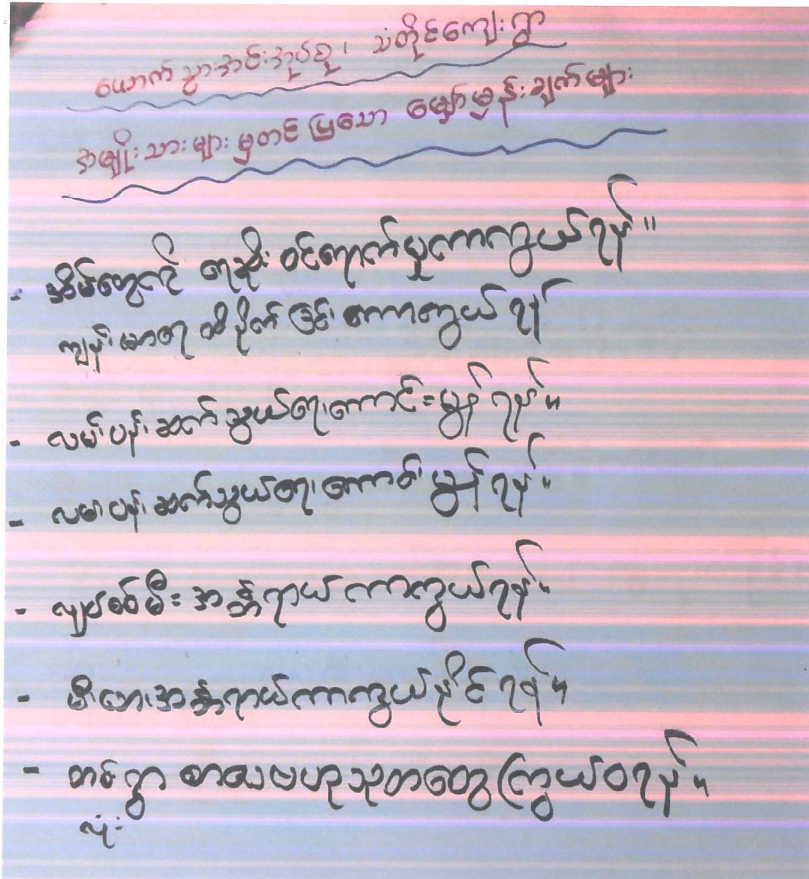 ယောက်သွားအင်းအုပ်စု၊ သံတိုင်ကျေးရွာ
အမျိုးသားများမှတင်ပြသော မျှော်မှန်းချက်များ
- အိမ်တွေကို ရေဆိုးဝင်ရောက်မှုကာကွယ်ရန်။
ကျန်းမာရေး ထိခိုက်ခြင်း ကာကွယ်ရန်
- လမ်းပန်းဆက်သွယ်ရေးကောင်းမွန်ရန်။
- လမ်းပန်းဆက်သွယ်ရေးကောင်းမွန်ရန်။
- လျှပ်စစ်မီးအန္တရာယ်ကာကွယ်ရန်။
- မီးဘေးအန္တရာယ်ကာကွယ်နိုင်ရန်။
- တစ်ရွာ စာပေဗဟုသုတတွေကြွယ်ဝရန်။
လုံး